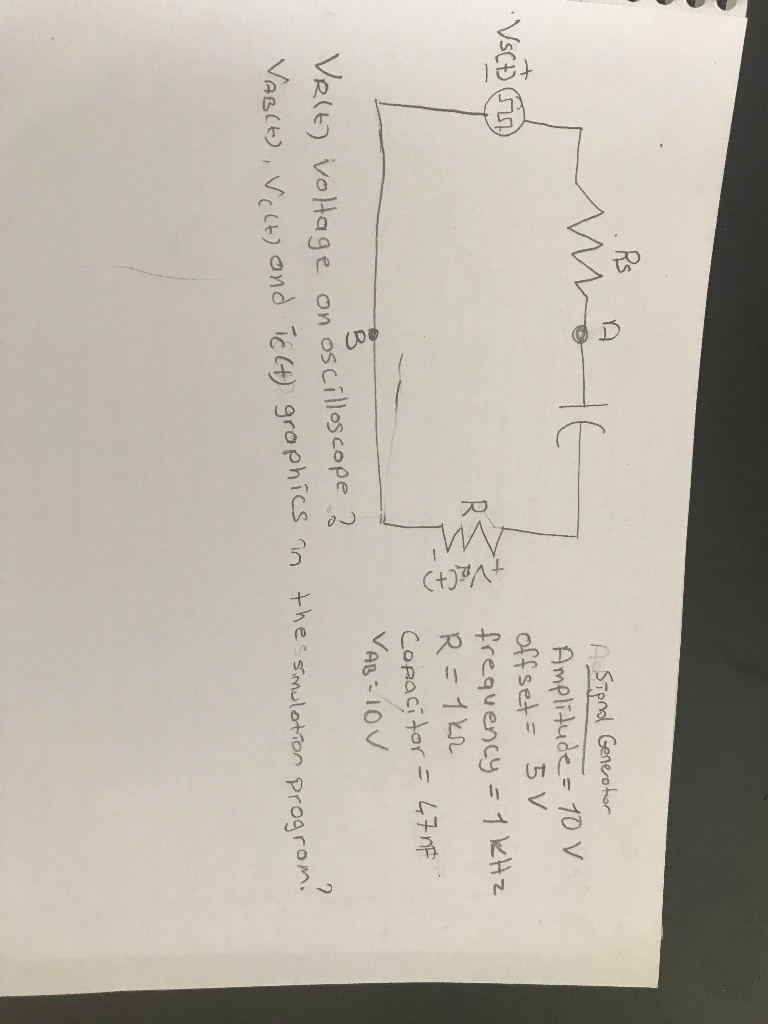 Vs(t)
+
-
Rs
A
B
R
+
VR(t)
-
Signal Generator
Amplitude = 10 V
offset = 5 V
frequency = 1 kHz
R = 1 kΩ
Capacitor = 47 nF
VAB = 10 V
VR(t) voltage on oscilloscope ?
VAB(t), Vc(t) and ic(t) graphics in the simulation program. ?